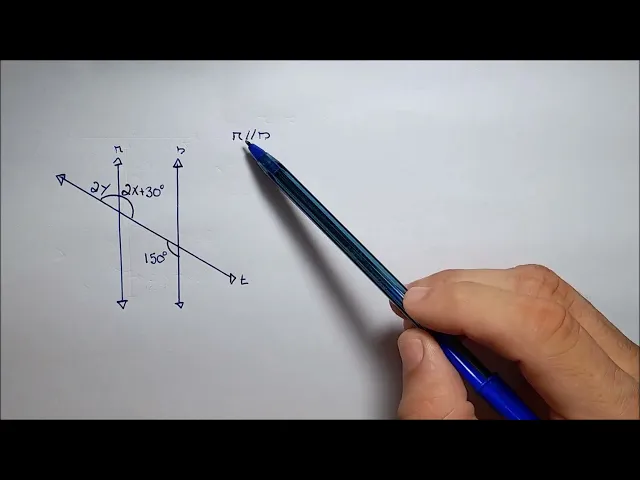 r//s
r s
2y 2x+30°
150°
t